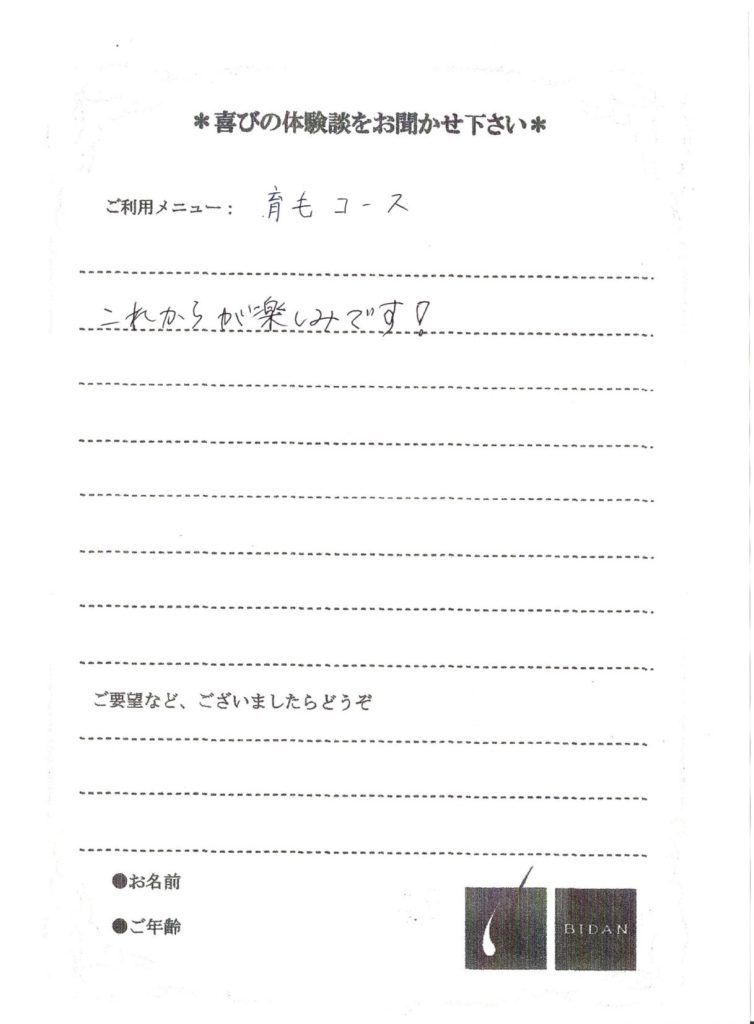 ＊喜びの体験談をお聞かせ下さい＊
ご利用メニュー： 育毛コース
これからが楽しみです！
ご要望など、ございましたらどうぞ
●お名前
●ご年齢
BIDAN